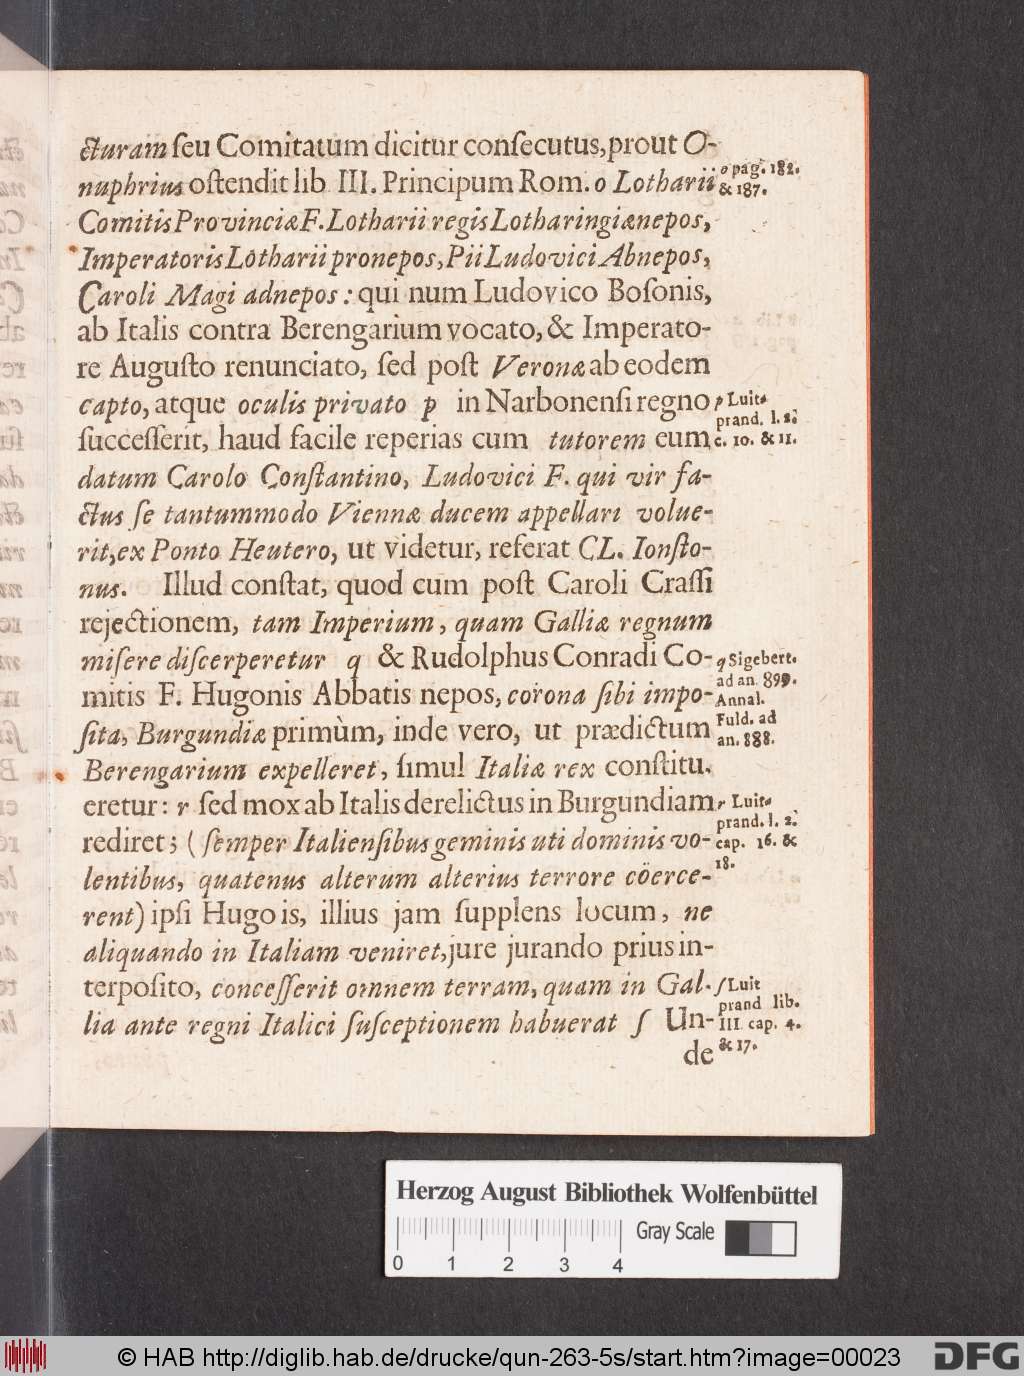 cturam ſeu Comitatum dicitur conſecutus, prout O-
nuphrius oſtendit lib III. Principum Rom. o Lotharii
o pag. 182.
& 187.
Comitis Provinciæ F. Lotharii regis Lotharingiæ nepos,
Imperatoris Lotharii pronepos, Pii Ludovici Abnepos,
Caroli Magi adnepos: qui num Ludovico Boſonis,
ab Italis contra Berengarium vocato, & Imperato-
re Auguſto renunciato, ſed poſt Veronæ ab eodem
capto, atque oculis privato p in Narbonenſi regno
p Luit-
prand. l. 2.
c. 10. & 11.
ſucceſſerit, haud facile reperias cum tutorem eum
datum Carolo Conſtantino, Ludovici F. qui vir fa-
ctus ſe tantummodo Viennæ ducem appellari volue-
rit, ex Ponto Heutero, ut videtur, referat CL. Ionſto-
nus. Illud conſtat, quod cum poſt Caroli Craſſi
rejectionem, tam Imperium, quam Galliæ regnum
miſere diſcerperetur q & Rudolphus Conradi Co-
q Sigebert.
ad an. 899.
Annal.
Fuld. ad
an. 888.
mitis F. Hugonis Abbatis nepos, corona ſibi impo-
ſita, Burgundiæ primùm, inde vero, ut prædictum
Berengarium expelleret, ſimul Italiæ rex conſtitu.
eretur: r ſed mox ab Italis derelictus in Burgundiam
r Luit-
prand. l. 2.
cap. 16. &
18.
rediret; (ſemper Italienſibus geminis uti dominis vo-
lentibus, quatenus alterum alterius terrore cöerce-
rent) ipſi Hugo is, illius jam ſupplens locum, ne
aliquando in Italiam veniret, jure jurando prius in-
terpoſito, conceſſerit omnem terram, quam in Gal-
ſ Luit
prand lib.
III. cap. 4.
& 17.
lia ante regni Italici ſuſceptionem habuerat ſ Un-
de
Herzog August Bibliothek Wolfenbüttel
Gray Scale
0 1 2 3 4
© HAB http://diglib.hab.de/drucke/qun-263-5s/start.htm?image=00023
DFG